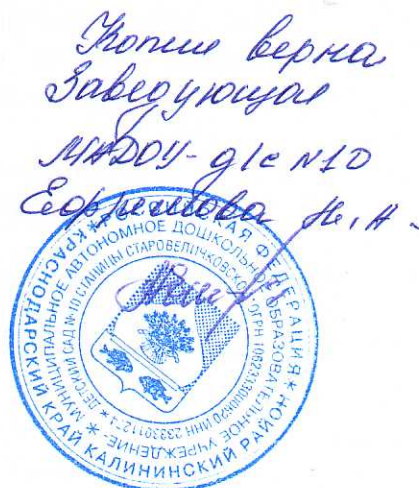 Копия верна
Заведующая
МАДОУ-д/с №10
Ефремова Н.А.
* РОССИЙСКАЯ ФЕДЕРАЦИЯ * КРАСНОДАРСКИЙ КРАЙ КАЛИНИНСКИЙ РАЙОН
МУНИЦИПАЛЬНОЕ АВТОНОМНОЕ ДОШКОЛЬНОЕ ОБРАЗОВАТЕЛЬНОЕ УЧРЕЖДЕНИЕ- *
ДЕТСКИЙ САД №10 СТАНИЦЫ СТАРОВЕЛИЧКОВСКОЙ * ОГРН ИНН